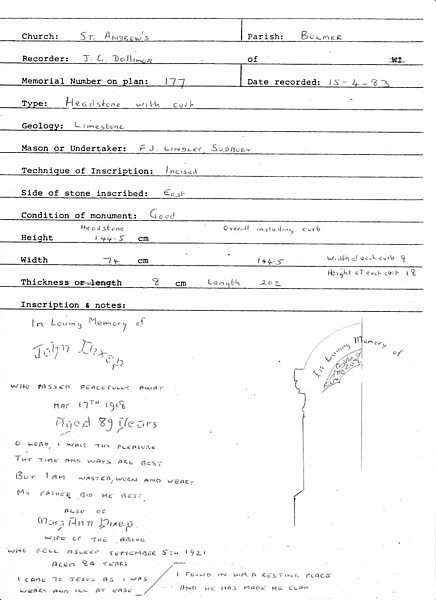 Church: ST. ANDREW'S Parish: BULMER
Recorder: J.C. Dallimore of WI
Memorial Number on plan: 177 Date recorded: 15-4-83
Type: Headstone with curb
Geology: Limestone
Mason or Undertaker: F J. LINDLEY, SUDBURY
Technique of Inscription: Incised
Side of stone inscribed: East
Condition of monument: Good
Headstone Overall including curb
Height 144.5 cm
Width 74 cm 144.5 Width of each curb 9
Height of each curb 18
Thickness or length 8 cm Length 202
Inscription & notes:
In Loving Memory of
John Dixey
WHO PASSED PEACEFULLY AWAY
MAY 17TH 1918
Aged 89 Years
O LORD, I WAIT THY PLEASURE
THY TIME AND WAYS ARE BEST
BUT I AM WASTED, WORN AND WEARY
MY FATHER BID ME REST.
ALSO OF
Mary Ann Dixey
WIFE OF THE ABOVE
WHO FELL ASLEEP SEPTEMBER 5TH 1921
AGED 84 YEARS
I CAME TO JESUS AS I WAS
WEARY AND ILL AT EASE
I FOUND IN HIM A RESTING PLACE
AND HE HAS MADE ME GLAD
In Loving Memory of